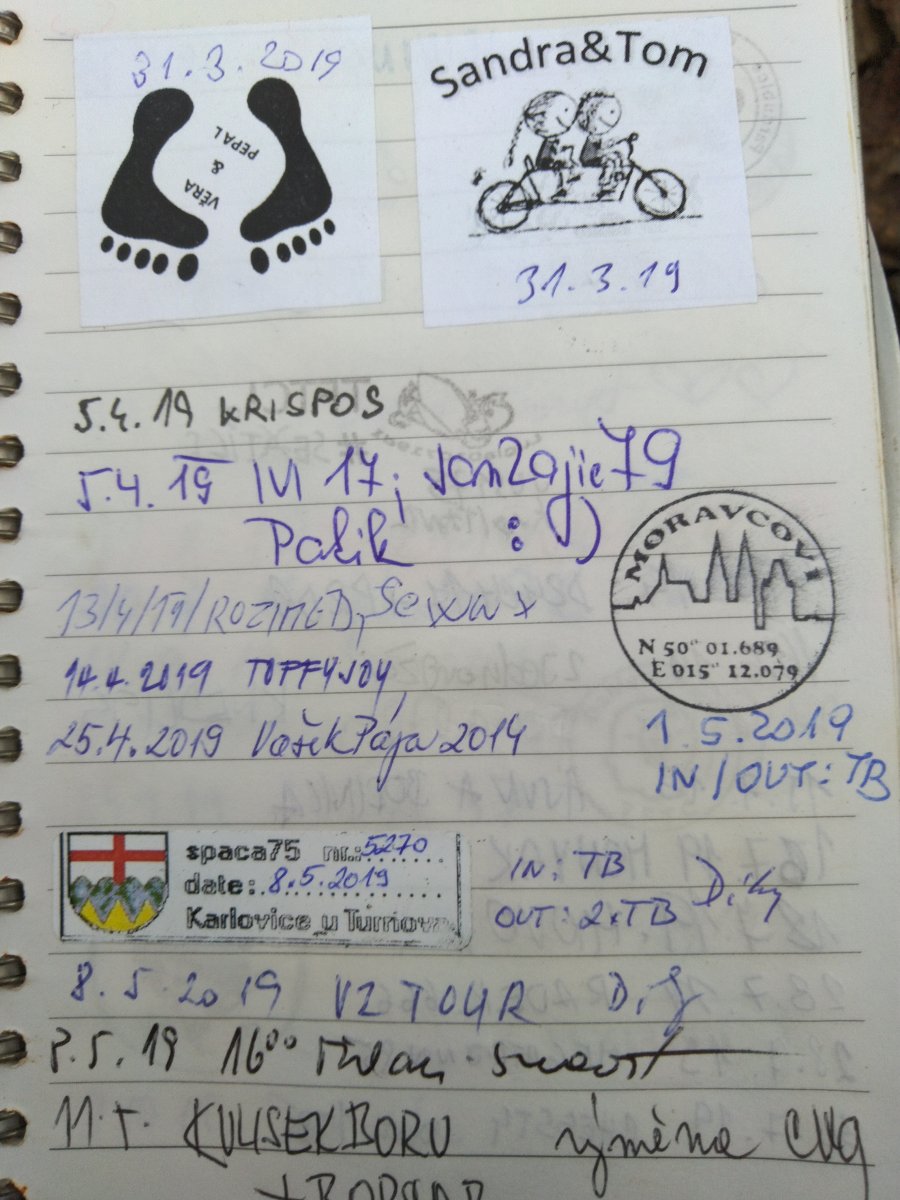 31.3.2019
VĚRA
&
PEPAL
Sandra&Tom
31.3.19
5.4.19 KRISPOS
5.4.19 IVI 17;
:)
MORAVCOVI
N 50° 01.689
E 015° 12.079
13/4/19/ROZIMED,
14.4.2019 TOFFYJOY,
25.4.2019 VašekPája2014
1.5.2019
IN/OUT: TB
spaca75 nr.: 5270
date: 8.5.2019
Karlovice u Turnova
IN: TB
OUT: 2xTB
Díky
8.5.2019 VZTOUR
8.5.19 16°°
11.5. KULISEKBORU výměna CWG